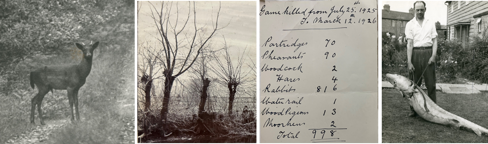 Game killed from July 25th, 1925
To March 12th, 1926
Partridges 70
Pheasants 90
Woodcock 2
Hares 4
Rabbits 816
Water rail 1
Wood Pigeon 13
Moorhens 2
Total 998